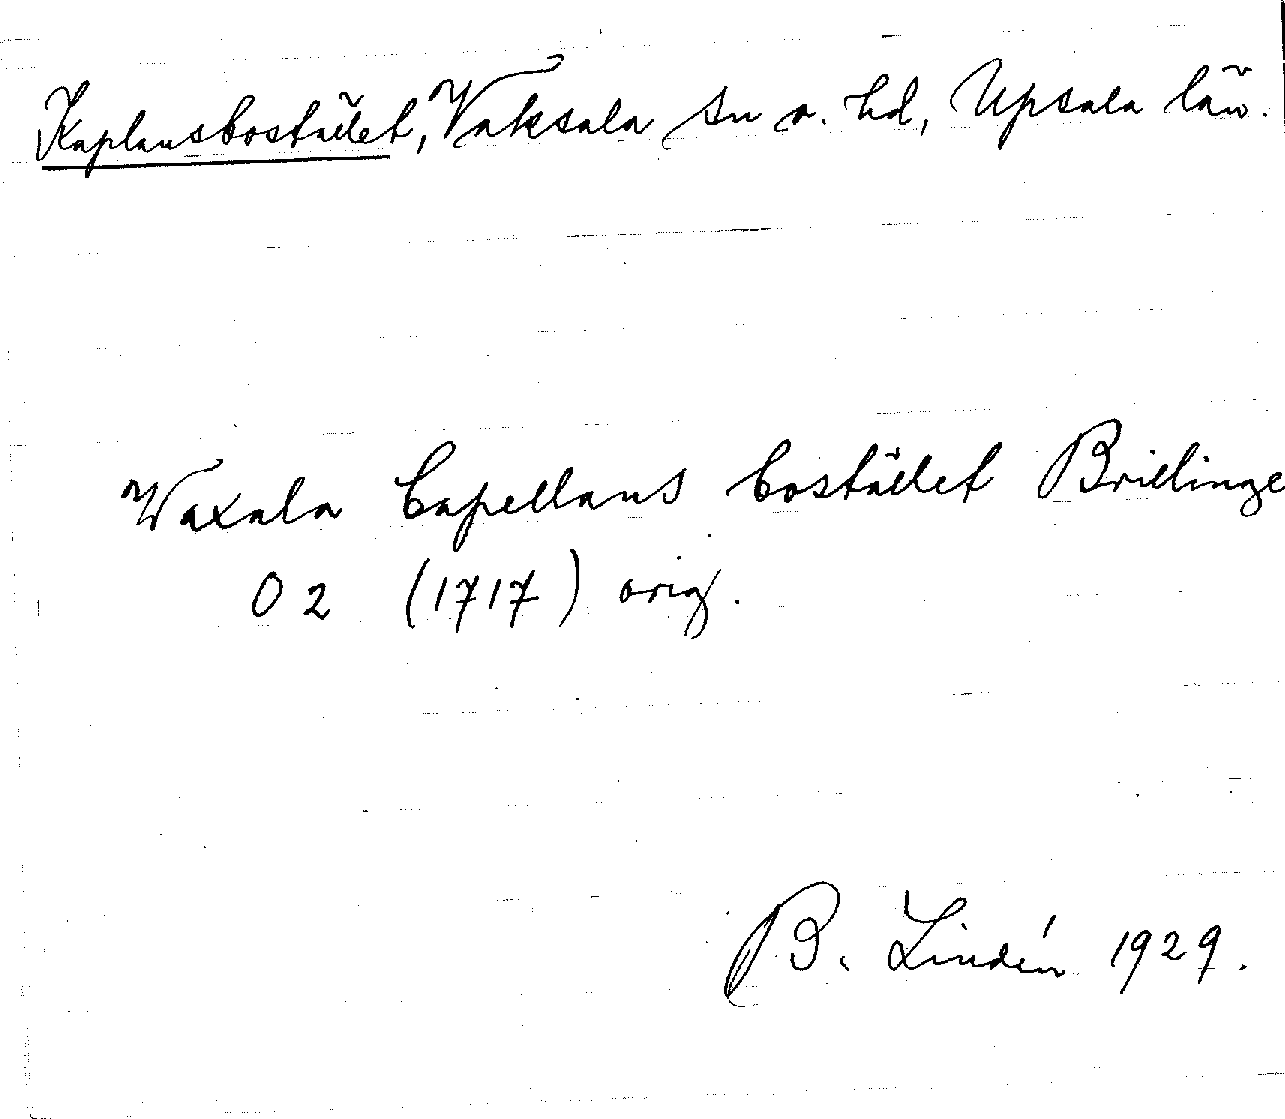 Kaplansbostället, Vaksala sn o. hd, Upsala län.
Waxala Capellans bostället Brillinge
O 2 (1717) orig.
B. Lindén 1929.